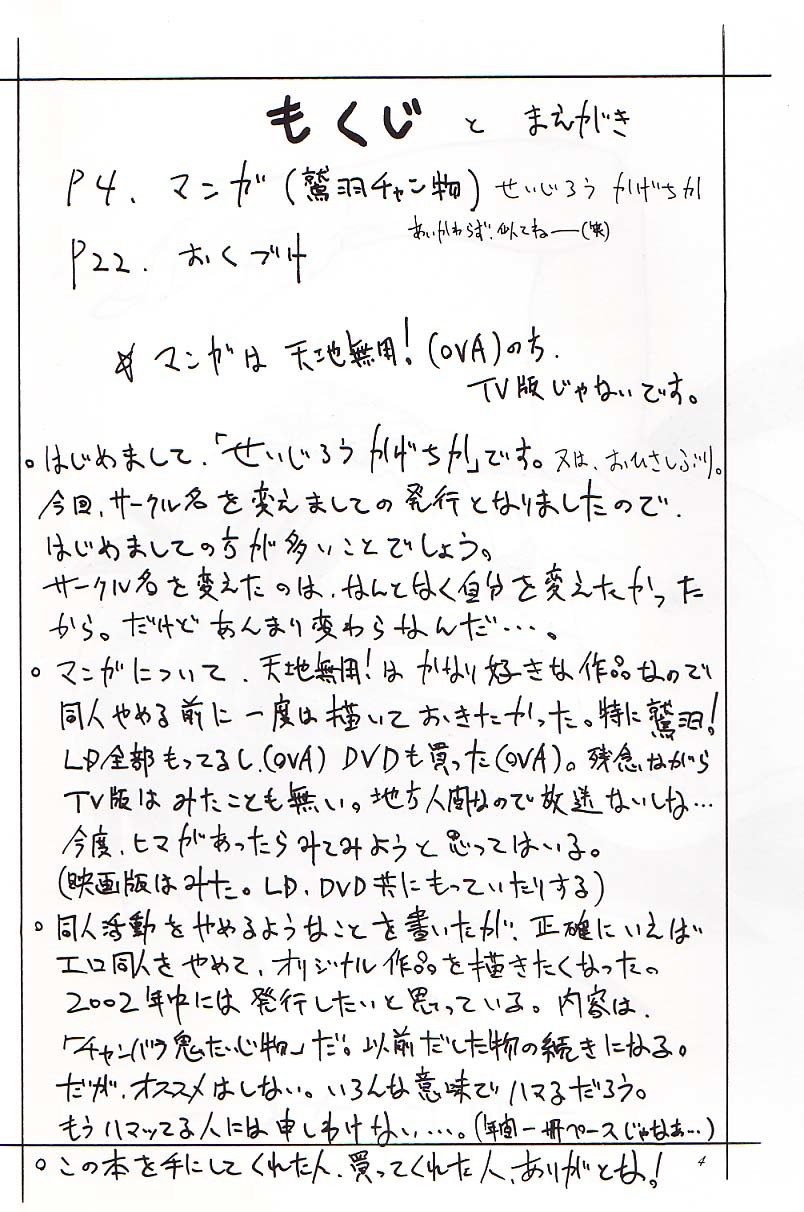 もくじ と まえがき
P4. マンガ(鷲羽チャン物) せいじろう かげちか
あいかわらず、似てねー(笑)
P22. おくづけ
☆マンガは 天地無用!(OVA)のち.
TV版じゃないです。
○はじめまして、「せいじろう かげちか」です。又は、おひさしぶり。
今回、サークル名を変えましての発行となりましたので、
はじめましての方が多いことでしょう。
サークル名を変えたのは、なんとなく自分を変えたかった
から。だけど あんまり変わらなんだ…。
○マンガについて、天地無用!は かなり好きな作品なので
同人やめる前に一度は描いておきたかった。特に鷲羽!
LD全部もってるし、(OVA) DVDも買った(OVA)。残念ながら
TV版は みたことも無い。地方人間なので放送ないしね…
今度、ヒマがあったらみてみようと思ってはいる。
(映画版はみた。LD、DVD共にもっていたりする)
○同人活動をやめるようなことを書いたが、正確にいえば
エロ同人をやめて、オリジナル作品を描きたくなったの。
2002年中には発行したいと思っている。内容は、
「チャンバラ鬼たいじ物」だ。以前だした物の続きになる。
だが、オススメはしない。いろんな意味でハマるだろう。
もうハマッてる人には申しわけない…。(年間一冊ペースじゃなぁ…)
○この本を手にしてくれた人、買ってくれた人、ありがとな!
4